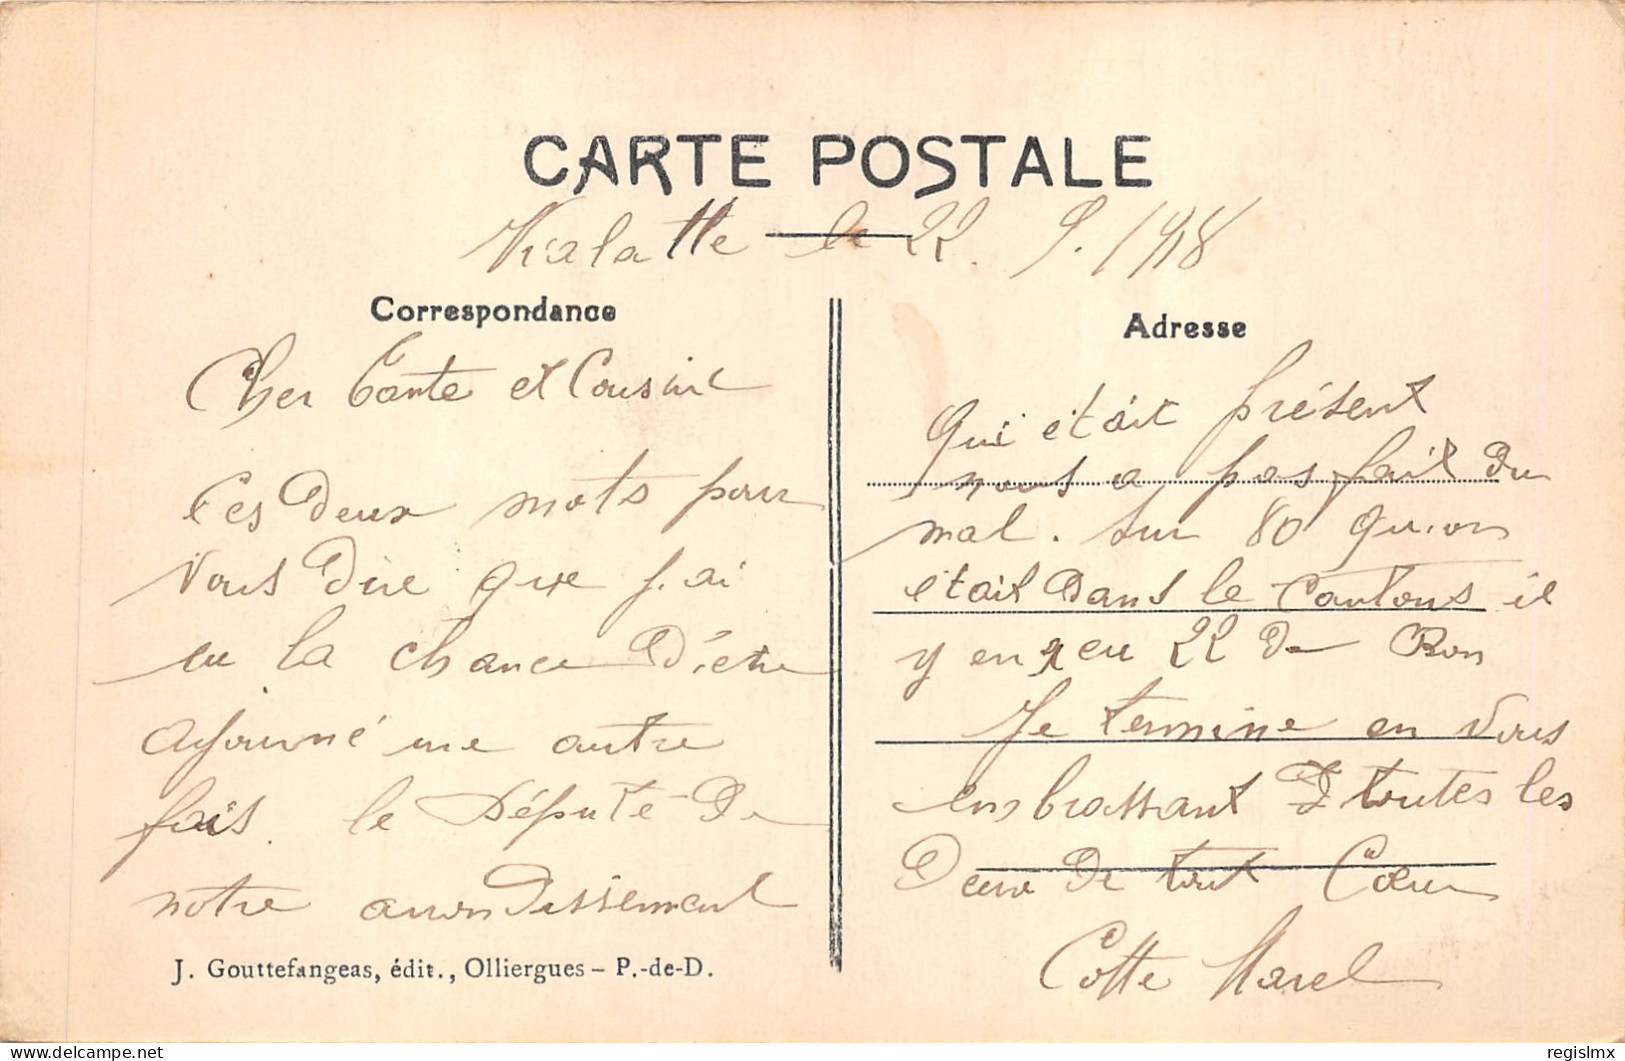 CARTE POSTALE
Vialatte le 22. 9. 1918
Correspondance
Cher tante et Cousine
Ces deux mots pour
vous dire que j.ai
eu la chance d'etre
ajourné une autre
fois. le Député de
notre arrondissement
J. Gouttefangeas, édit., Olliergues - P.-de-D.
Adresse
qui était présent
nous a pas fait du
mal. sur 80 qu.on
était dans le cantons il
y en n eu 22 de Bon
Je termine en vous
embrassant toutes les
deux de tout Cœur
Cotte Marcel
delcampe.net
regislmx